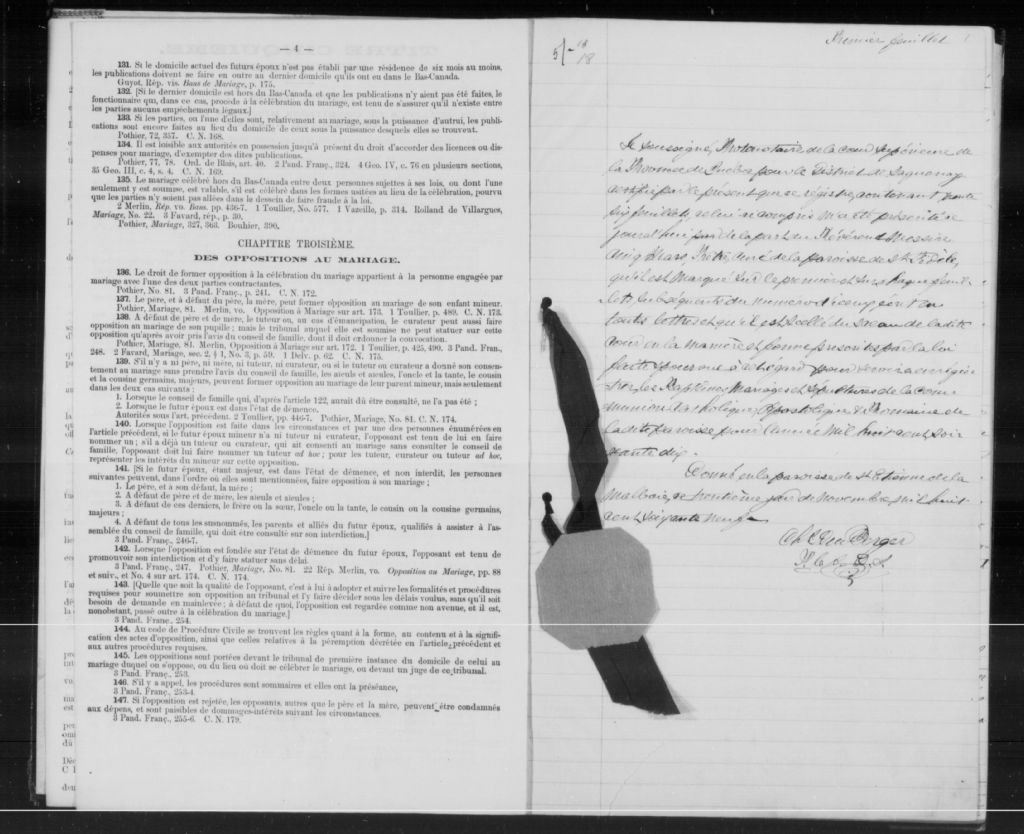 — 4 —
131. Si le domicile actuel des futurs époux n'est pas établi par une résidence de six mois au moins,
les publications doivent se faire en outre au dernier domicile qu'ils ont eu dans le Bas-Canada.
Guyot, Rép. vis. Bans de Mariage, p. 175.
132. [Si le dernier domicile est hors du Bas-Canada et que les publications n'y aient pas été faites, le
fonctionnaire qui, dans ce cas, procède à la célébration du mariage, est tenu de s'assurer qu'il n'existe entre
les parties aucuns empêchements légaux.]
133. Si les parties, ou l'une d'elles sont, relativement au mariage, sous la puissance d'autrui, les publi-
cations sont encore faites au lieu du domicile de ceux sous la puissance desquels elles se trouvent.
Pothier, 72, 357. C. N. 168.
134. Il est loisible aux autorités en possession jusqu'à présent du droit d'accorder des licences ou dis-
penses pour mariage, d'exempter des dites publications.
Pothier, 77, 78. Ord. de Blois, art. 40. 2 Pand. Franç., 324. 4 Geo. IV, c. 76 en plusieurs sections,
35 Geo. III, c. 4, s. 4. C. N. 169.
135. Le mariage célébré hors du Bas-Canada entre deux personnes sujettes à ses lois, ou dont l'une
seulement y est soumise, est valable, s'il est célébré dans les formes usitées au lieu de la célébration, pourvu
que les parties n'y soient pas allées dans le dessein de faire fraude à la loi.
2 Merlin, Rép. vo. Bans. pp. 436-7. 1 Toullier, No. 577. 1 Vazeille, p. 314. Rolland de Villargues,
Mariage, No. 22. 3 Favard, rép., p. 30.
Pothier, Mariage, 327, 363. Bouhier, 390.
CHAPITRE TROISIÈME.
DES OPPOSITIONS AU MARIAGE.
136. Le droit de former opposition à la célébration du mariage appartient à la personne engagée par
mariage avec l'une des deux parties contractantes.
Pothier, No. 81. 3 Pand. Franç., p. 241. C. N. 172.
137. Le père, et à défaut du père, la mère, peut former opposition au mariage de son enfant mineur.
Pothier, Mariage, 81. Merlin, vo. Opposition à Mariage sur art. 173. 1 Toullier, p. 489. C. N. 173.
138. A défaut de père et de mère, le tuteur ou, au cas d'émancipation, le curateur peut aussi faire
opposition au mariage de son pupille; mais le tribunal auquel elle est soumise ne peut statuer sur cette
opposition qu'après avoir pris l'avis du conseil de famille, dont il doit ordonner la convocation.
Pothier, Mariage, 81. Merlin, Opposition à Mariage sur art. 172. 1 Toullier, p. 425, 490. 3 Pand. Fran.,
248. 2 Favard, Mariage, sec. 2, § 1, No. 3, p. 59. 1 Delv. p. 62. C. N. 175.
139. S'il n'y a ni père, ni mère, ni tuteur, ni curateur, ou si le tuteur ou curateur a donné son consen-
tement au mariage sans prendre l'avis du conseil de famille, les aieuls et aieules, l'oncle et la tante, le cousin
et la cousine germains, majeurs, peuvent former opposition au mariage de leur parent mineur, mais seulement
dans les deux cas suivants:
1. Lorsque le conseil de famille qui, d'après l'article 122, aurait dû être consulté, ne l'a pas été;
2. Lorsque le futur époux est dans l'état de démence.
Autorités sous l'art. précédent. 2 Toullier, pp. 446-7. Pothier, Mariage, No. 81. C. N. 174.
140. Lorsque l'opposition est faite dans les circonstances et par une des personnes énumérées en
l'article précédent, si le futur époux mineur n'a ni tuteur ni curateur, l'opposant est tenu de lui en faire
nommer un; s'il a déjà un tuteur ou curateur, qui ait consenti au mariage sans consulter le conseil de
famille, l'opposant doit lui faire nommer un tuteur ad hoc; pour les tuteur, curateur ou tuteur ad hoc,
représenter les intérêts du mineur sur cette opposition.
141. [Si le futur époux, étant majeur, est dans l'état de démence, et non interdit, les personnes
suivantes peuvent, dans l'ordre où elles sont mentionnées, faire opposition à son mariage;
1. Le père, et à son défaut, la mère;
2. A défaut de père et de mère, les aieuls et aieules;
3. A défaut de ces derniers, le frère ou la sœur, l'oncle ou la tante, le cousin ou la cousine germains,
majeurs;
4. A défaut de tous les susnommés, les parents et alliés du futur époux, qualifiés à assister à l'as-
semblée du conseil de famille, qui doit être consulté sur son interdiction.]
3 Pand. Franç., 246-7.
142. Lorsque l'opposition est fondée sur l'état de démence du futur époux, l'opposant est tenu de
promouvoir son interdiction et d'y faire statuer sans délai.
3 Pand. Franç., 247. Pothier, Mariage, No. 81. 22 Rép. Merlin, vo. Opposition au Mariage, pp. 88
et suiv., et No. 4 sur art. 174. C. N. 174.
143. [Quelle que soit la qualité de l'opposant, c'est à lui à adopter et suivre les formalités et procédures
requises pour soumettre son opposition au tribunal et l'y faire décider sous les délais voulus, sans qu'il soit
besoin de demande en mainlevée; à défaut de quoi, l'opposition est regardée comme non avenue, et il est,
nonobstant, passé outre à la célébration du mariage.]
3 Pand. Franç., 254.
144. Au code de Procédure Civile se trouvent les règles quant à la forme, au contenu et à la signifi-
cation des actes d'opposition, ainsi que celles relatives à la péremption décrétée en l'article précédent et
aux autres procédures requises.
145. Les oppositions sont portées devant le tribunal de première instance du domicile de celui au
mariage duquel on s'oppose, ou du lieu où doit se célébrer le mariage, ou devant un juge de ce tribunal.
3 Pand. Franç., 253.
146. S'il y a appel, les procédures sont sommaires et elles ont la préséance,
3 Pand. Franç., 253-4.
147. Si l'opposition est rejetée, les opposants, autres que le père et la mère, peuvent être condamnés
aux dépens, et sont paisibles de dommages-intérêts suivant les circonstances.
3 Pand. Franç., 255-6. C. N. 179.
Premier feuillet
Je soussigné, Protonotaire de la Cour Supérieure de
la Province de Québec pour le District de Saguenay
certifie par le présent que ce régistre, contenant trente
six feuillets, celui-ci compris m'a été présenté ce
jourd'hui par de la part du Révérend Messire
Prêtre, Curé de la paroisse de St. Fidèle,
qu'il est marqué sur le premier et sur chaque feuil-
lets subséquents du numéro d'iceux écrit en
toutes lettres et qu'il est scellé du sceau de la dite
cour en la manière et forme prescrites par la loi
pour servir à enrégis-
trer les Baptêmes, Mariages et Sépultures de la Com-
munion Catholique, Apostolique & Romaine de
la dite paroisse pour l'année mil huit cent soix-
ante dix.
Donné en la paroisse de St Etienne de la
Malbaie, ce trentième jour de Novembre mil huit
cent soixante neuf
P. C. S.